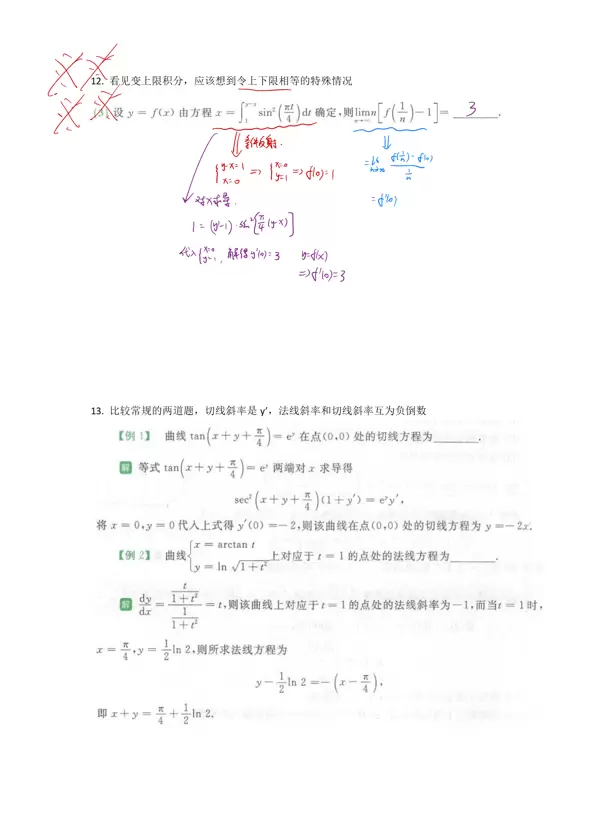 12. 看见变上限积分，应该想到令上下限相等的特殊情况
(3) 设 y = f(x) 由方程 x = ∫₁^{y−x} sin²(πt/4)dt 确定,则 lim_{n→∞} n[f(1/n)−1] = 3 .
条件反射.
{y-x=1 x=0 => {x=0 y=1 => f(0)=1
= lim_{n→∞} (f(1/n)-f(0))/(1/n)
= f'(0)
对x求导.
1 = (y'-1)·sin²[π/4(y-x)]
代入{x=0 y=1, 解得y'(0)=3 y=f(x)
=> f'(0)=3
13. 比较常规的两道题，切线斜率是 y′，法线斜率和切线斜率互为负倒数
【例 1】 曲线 tan(x+y+π/4)=e^y 在点(0,0) 处的切线方程为________.
解 等式 tan(x+y+π/4)=e^y 两端对 x 求导得
sec²(x+y+π/4)(1+y′)=e^y y′,
将 x = 0,y = 0 代入上式得 y′(0)=−2,则该曲线在点(0,0) 处的切线方程为 y =−2x.
【例 2】 曲线{x = arctan t y = ln √(1+t²) 上对应于 t = 1 的点处的法线方程为________.
解 dy/dx = (t/(1+t²))/(1/(1+t²)) = t,则该曲线上对应于 t = 1 的点处的法线斜率为−1,而当t = 1 时,
x = π/4,y = 1/2 ln 2,则所求法线方程为
y − 1/2 ln 2 =−(x − π/4),
即 x + y = π/4 + 1/2 ln 2.